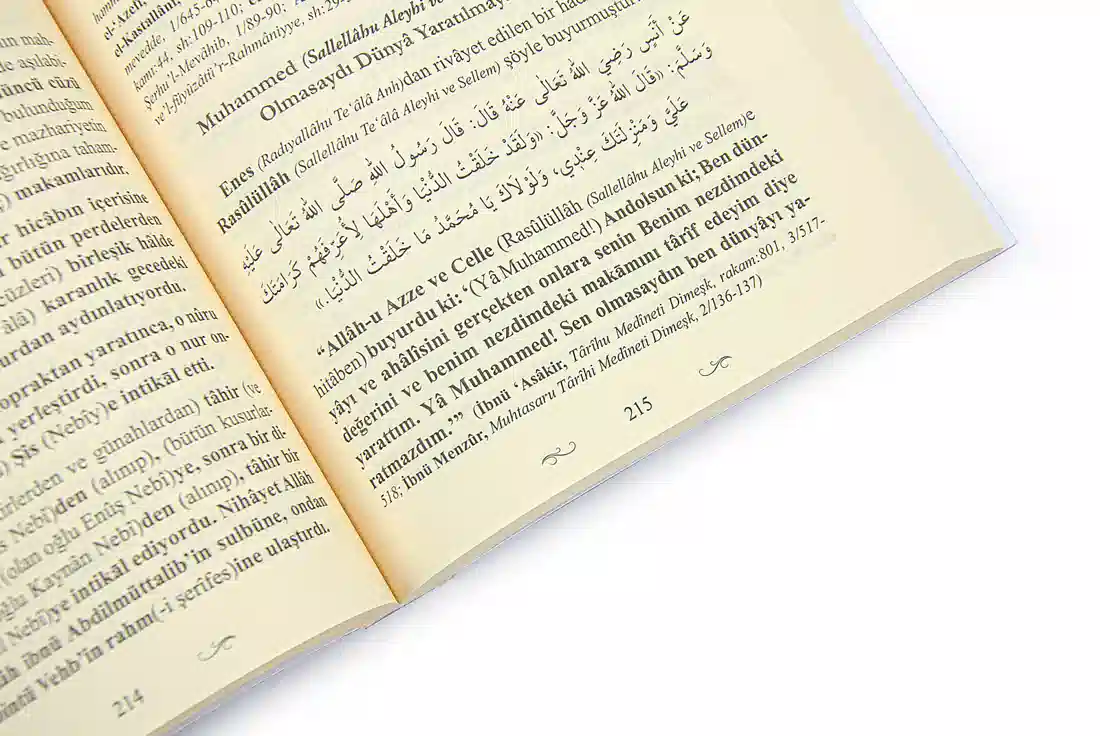 ün mah-
de aşılabi-
üncü cüzü
bulunduğum
e mazhariyetin
ğırlığına taham-
makamlarıdır.
r hicâbın içerisine
bütün perdelerden
cüzleri) birleşik hâlde
âlâ) karanlık gecedeki
urdan aydınlatıyordu.
opraktan yaratınca, o nûru
yerleştirdi, sonra o nur on-
Şîs (Nebîy)e intikāl etti.
irlerden ve günahlardan) tâhir (ve
s Nebî)den (alınıp), (bütün kusurlar-
(olan oğlu Enûş Nebî)ye, sonra bir di-
oğlu Kaynân Nebî)den (alınıp), tâhir bir
Nebî)ye intikāl ediyordu. Nihâyet Allâh
âh ibnü Abdilmüttalib'in sulbüne, ondan
bintü Vehb'in rahm(-i şerîfes)ine ulaştırdı.
214
el-Kastallânî,
mevedde, 1/645-6
kamı:44, sh:109-110;
Şerhu'l-Mevâhib, 1/89-90;
ve'l-füyûzâtü'r-Rahmâniyye, sh:29
Muhammed (Sallellâhu Aleyhi ve
Olmasaydı Dünyâ Yaratılmay
Enes (Radıyallâhu Te'âlâ Anh)dan rivâyet edilen bir had
Rasûlüllâh (Sallellâhu Te'âlâ Aleyhi ve Sellem) şöyle buyurmuştur
عَنْ أَنَسٍ رَضِيَ اللهُ تَعَالَى عَنْهُ قَالَ: قَالَ رَسُولُ اللهِ صَلَّى اللهُ تَعَالَى عَلَيْهِ
وَسَلَّمَ: «قَالَ اللهُ عَزَّ وَجَلَّ: «وَلَقَدْ خَلَقْتُ الدُّنْيَا وَأَهْلَهَا لِأُعَرِّفَهُمْ كَرَامَتَكَ
عَلَيَّ وَمَنْزِلَتَكَ عِنْدِي، وَلَوْلَاكَ يَا مُحَمَّدُ مَا خَلَقْتُ الدُّنْيَا.»
“Allâh-u Azze ve Celle (Rasûlüllâh (Sallellâhu Aleyhi ve Sellem)e
hitâben) buyurdu ki: ‘(Yâ Muhammed!) Andolsun ki; Ben dün-
yâyı ve ahâlîsini gerçekten onlara senin Benim nezdimdeki
değerini ve benim nezdimdeki makâmını târîf edeyim diye
yarattım. Yâ Muhammed! Sen olmasaydın ben dünyâyı ya-
ratmazdım.’” (İbnü ‘Asâkir, Târîhu Medîneti Dimeşk, rakam:801, 3/517-
518; İbnü Menzûr, Muhtasaru Târîhi Medîneti Dimeşk, 2/136-137)
215